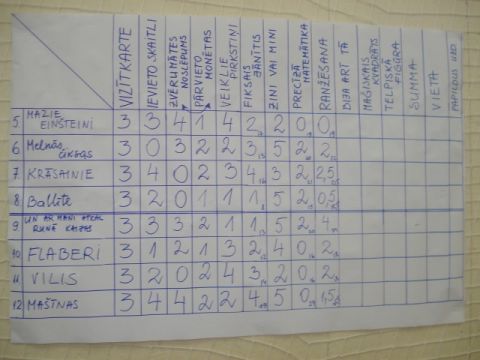 VIZĪTKARTE IEVIETO SKAITLI ZVĒRUMĀTES NOSLĒPUMS PĀRVIETO MONĒTAS VEIKLIE PIRKSTIŅI FIKSAIS ZIŅI VAI MINI PRECĪZĀ MATEMĀTIKA RANŽĒŠANA DIŽA ARĪ TĀ MAĢISKAIS KVADRĀTS TELPISKĀ FIGŪRA SUMMA VIETA
5. MAZIE EINŠTEINI 3 3 4 1 4 2 2 0 0
6 Melnās 3 0 3 2 2 3 5 2 2
7. KRĀSAINIE 3 4 0 2 3 4 3 2 2,5
8 Baltīte 3 2 0 1 1 1 5 2 0,5
9. UN AR MANI ATKAL RUNĀ 3 3 3 2 1 1 5 2 4
10. FLABERI 3 1 2 1 3 2 4 0 2
11. VILIS 3 2 0 2 4 3 2 0 2
12 MAŠTŅAS 3 4 4 2 2 4 5 0 1,5